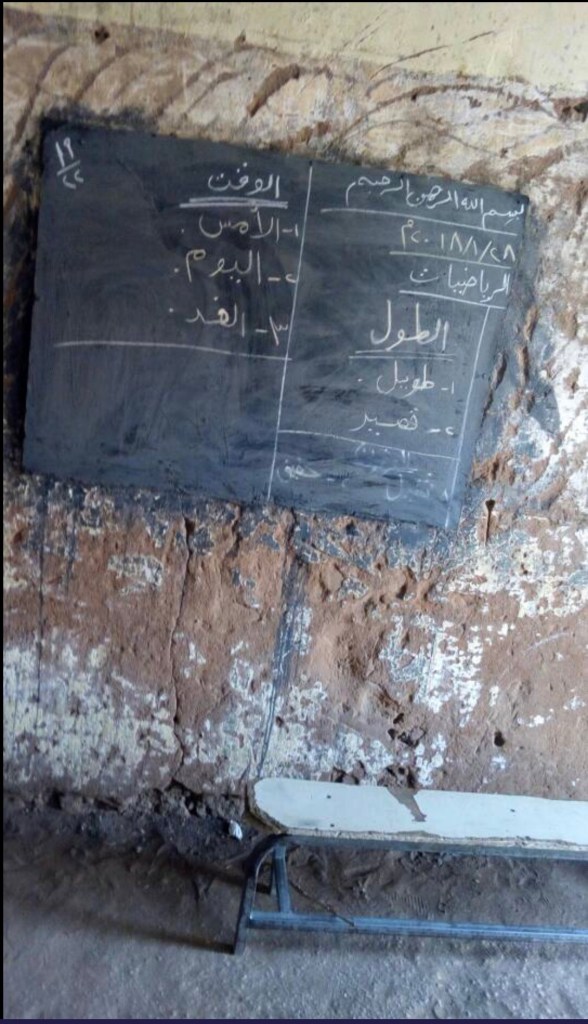 بسم الله الرحمن الرحيم
٢٠١٨/١/٢٨م
الرياضيات
الطول
١- طويل .
٢- قصير
الوقت
١- الأمس .
٢- اليوم .
٣- الغد .
١٩/٢٢